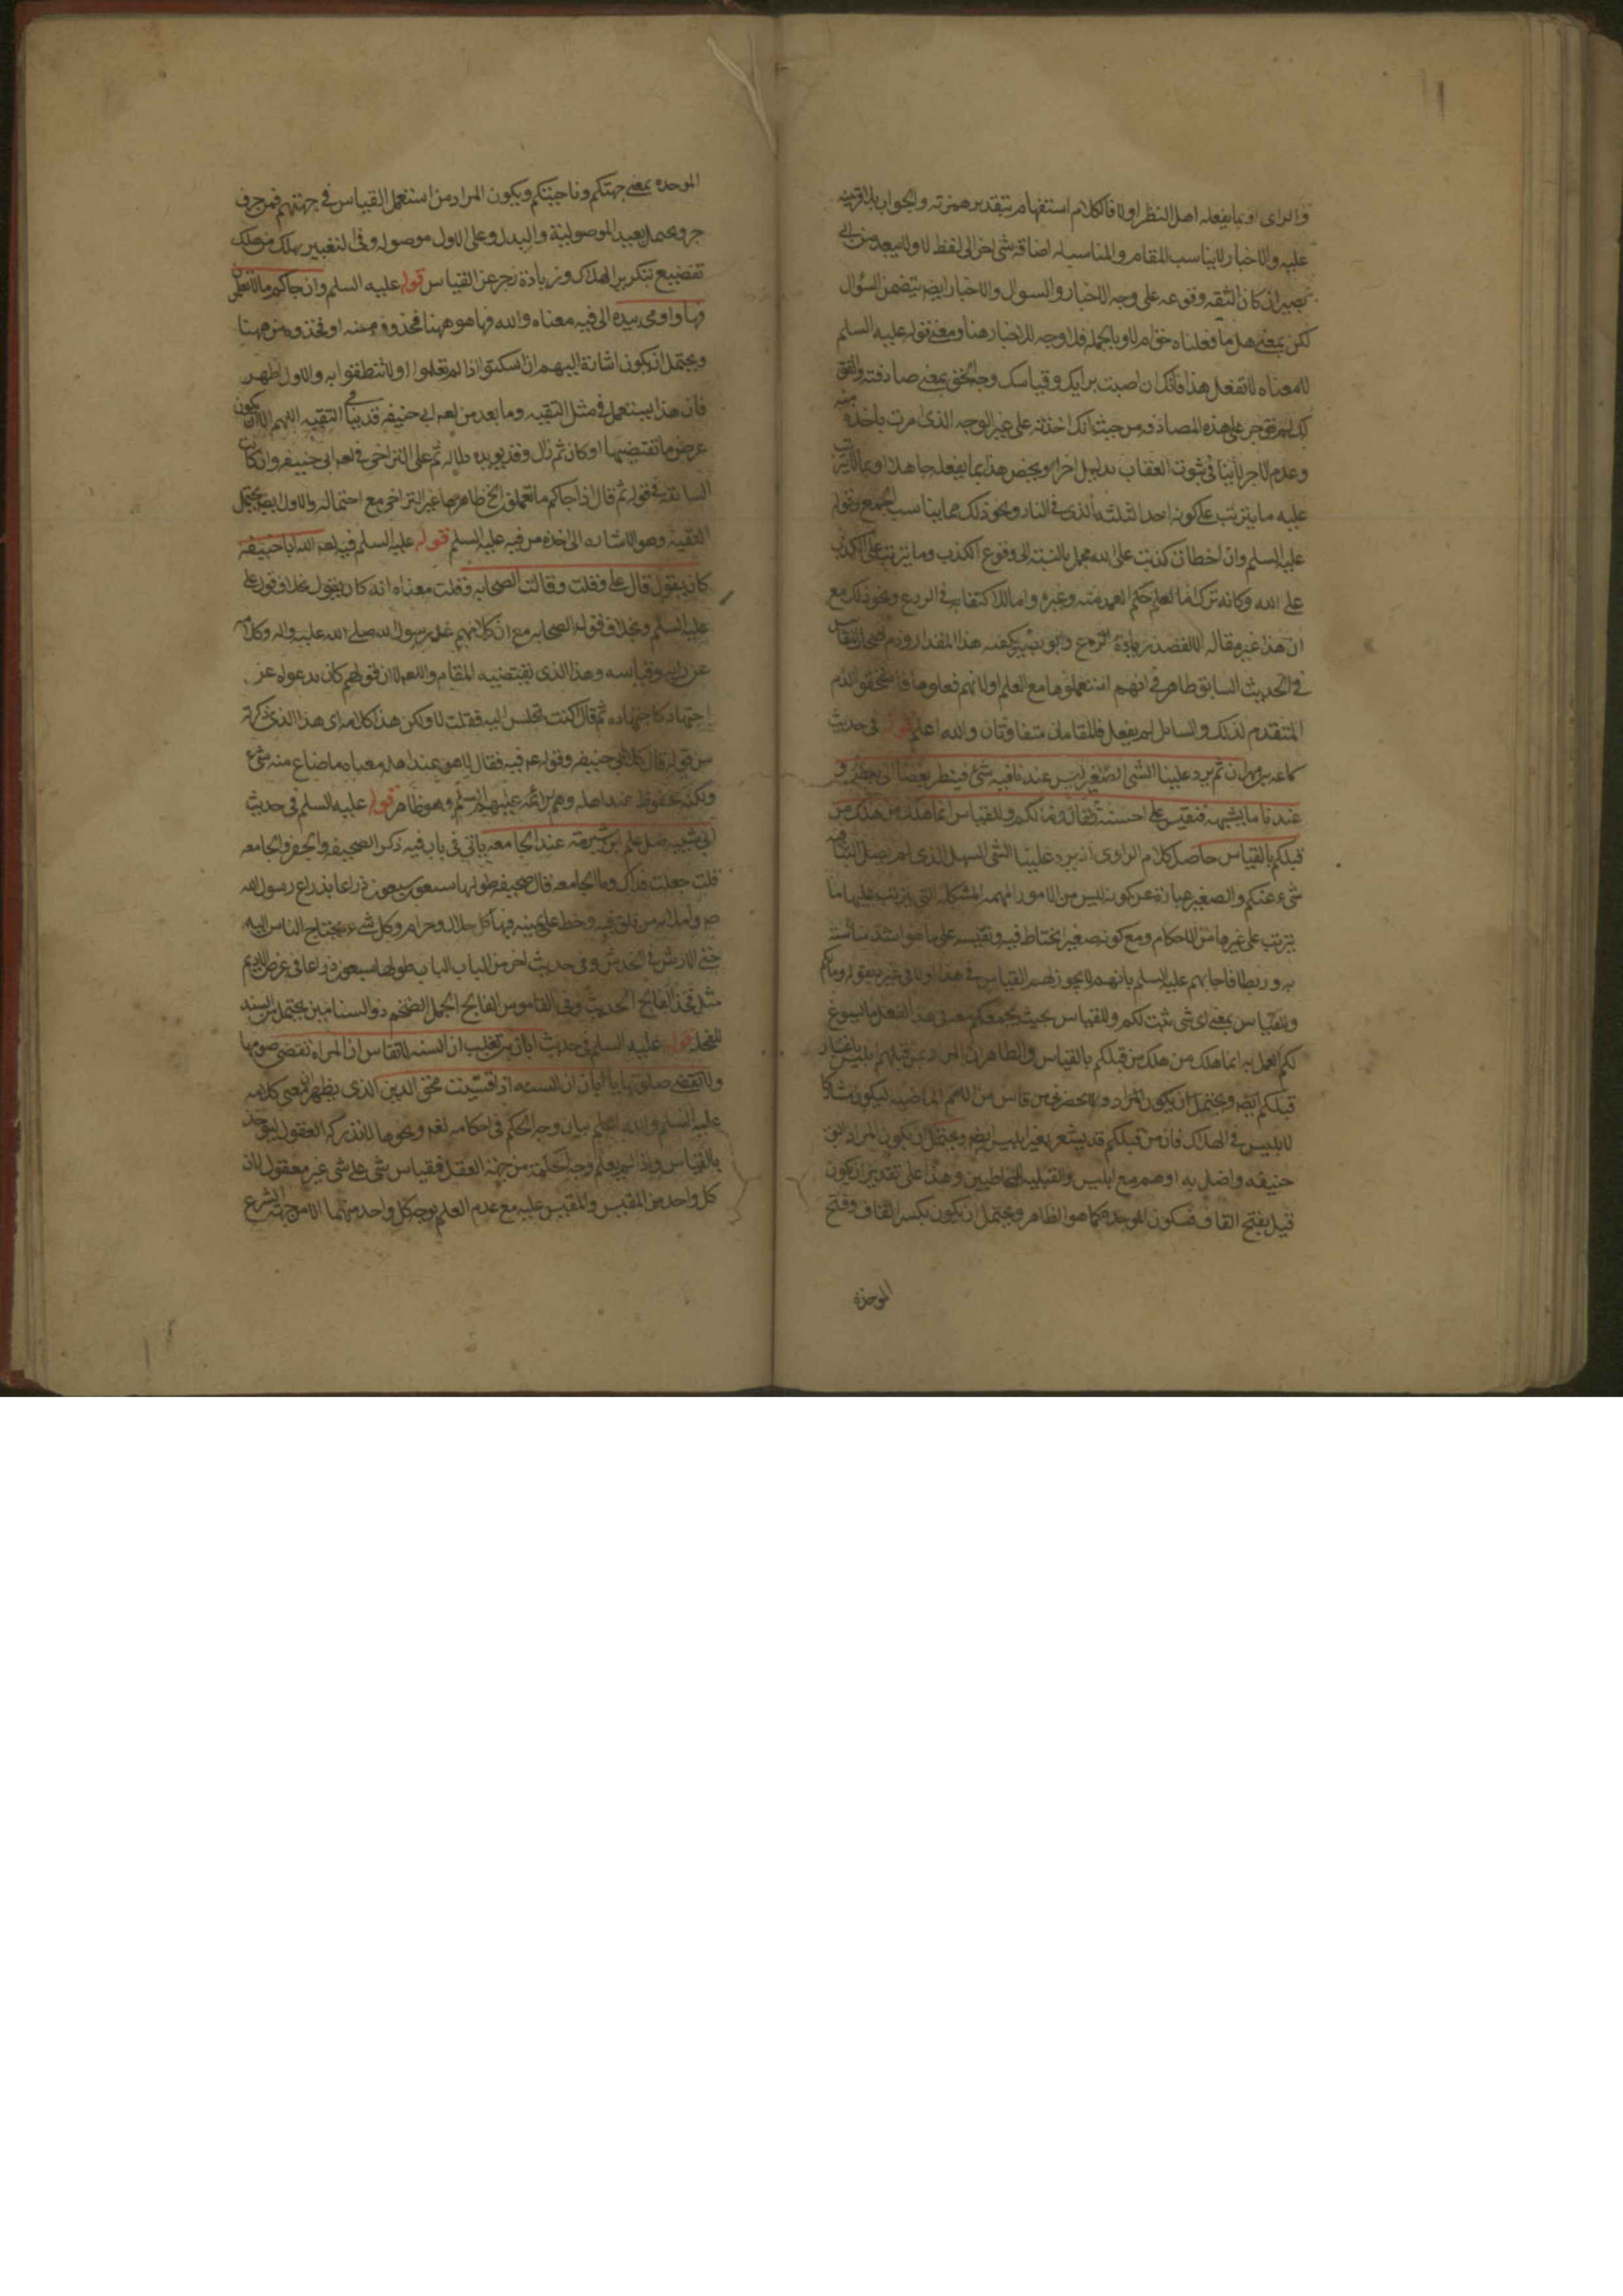 والرای او بما یفعله اهل النظر اولا فالکلام استفهام بتقدیر همزته والجواب بلا قرینه
علیه والاخبار لا یناسب المقام والمناسب له اضافه شی اخر الی لفظ لا ولا یبعد من ابی
بصیر ان کان الثقه وقوعه علی وجه الاخبار والسوال والاخبار ایضا یتضمن السؤال
لکن بمعنی هل ما فعلناه حق ام لا وبالجمله فلا وجه للاخبار هنا ومعنی قوله علیه السلم
لا معناه لا تفعل هذا فانک ان اصبت برایک وقیاسک وجه الحق بمعنی صادفته واتفق
لک لم توجر علی هذه المصادفه من حیث انک اخذته علی غیر الوجه الذی امرت باخذه منه
وعدم الاجر لا ینافی ثبوت العقاب بدلیل اخر او یخص هذا بما یفعله جاهلا او بما لا یترتب
علیه ما یترتب علی کونه احد الثلثه الذی فی النار ونحو ذلک مما یناسب الجمع وقوله
علیه السلم وان اخطات کذبت علی الله مجمل بالنسبه الی وقوع الکذب وما یترتب علی الکذب
علی الله وکانه ترک لما لعلم حکم العمد منه وغیره واما لاکتفائه فی الردع ونحو ذلک مع
ان هذا غیر مقاله لا لقصد زیاده الردع وابو بصیر یکفیه هذا المقدار وذم اصحاب المقائیس
فی الحدیث السابق ظاهر فی انهم استعملوها مع العلم او لانهم فعلوها فاستحقوا الذم
المتقدم لذلک والسائل لم یفعل فالمقامان متفاوتان والله اعلم قوله فی حدیث
سماعه بن مهران ثم یرد علینا الشی الصغیر لیس عندنا فیه شیء فینظر بعضنا الی بعض و
عندنا ما یشبهه فنقیس علی احسنه فقال وما لکم وللقیاس انما هلک من هلک من
قبلکم بالقیاس حاصل کلام الراوی انه یرد علینا الشی السهل الذی لم یصل الینا فیه
شیء عنکم والصغیر عباره عن کونه لیس من الامور المهمه المشکله التی یترتب علیها ما
یترتب علی غیرها من الاحکام ومع کونه صغیرا نحتاط فیه ونقیسه علی ما هو اشد مناسبة
به وربطا فاجابهم علیه السلم بانهم لا یجوز لهم القیاس فی هذا ولا فی غیره بقوله وما لکم
وللقیاس بمعنی ای شی ثبت لکم وللقیاس بحیث یجمعکم معه فی هذا الفعل ما یسوغ
لکم العمل به انما هلک من هلک من قبلکم بالقیاس والظاهر ان المراد بمن قبلهم ابلیس باعتبار
قبلکم ایضا ویحتمل ان یکون المراد ولا یحضرنی من قاس من الامم الماضیه لیکون مشارکا
لابلیس فی الهلاک فان من قبلکم قد یشعر بغیر ابلیس ایضا ویحتمل ان یکون المراد ابو
حنیفه واضل به او هم مع ابلیس والقبلیه للمخاطبین وهذا علی تقدیر ان یکون
قبل بفتح القاف وسکون الموحده کما هو الظاهر ویحتمل ان یکون بکسر القاف وفتح
الموحده
الموحده بمعنی جهتکم وناحیتکم ویکون المراد من استعمل القیاس فی جهتهم فمن حرف
جر ویحتمل بعید الموصولیة والبدل وعلی الاول موصوله وفی التعبیر بهلک من هلک
تفضیع بتکریر الهلاک وزیادة زجر عن القیاس قوله علیه السلم وان جاکم ما لا تعلمون
فها واومی بیده الی فیه معناه والله فها هو ههنا فخذوه منه او فخذوه من ههنا
ویحتمل ان یکون اشارة الیهم ان اسکتوا اذا لم تعلموا او لا تنطقوا به والاول اظهر
فان هذا یستعمل فی مثل التقیه وما بعد من لعنه ابی حنیفه قد ینافی التقیه اللهم الا ان یکون
عرض ما تقتضیها او کان ثم زال وقد یویده دلاله ثم علی التراخی فی لعنه ابی حنیفه وان کان
السابقه فی قوله ثم قال اذا جاکم ما تعلمون الخ ظاهرها غیر التراخی مع احتماله والاول ایضا یحتمل
التقیه وهو الاشاره الی اخذه من فیه علیه السلم قوله علیه السلم فیه لعن الله ابا حنیفه
کان یقول قال علی وقلت وقالت الصحابه وقلت معناه انه کان یقول بخلاف قول علی
علیه السلم وبخلاف قول الصحابه مع ان کلامهم عن رسول الله صلی الله علیه واله وکلامه
عن رایه وقیاسه وهذا الذی یقتضیه المقام واللعن لا ان قولهم کان بدعوله عن
اجتهاد کاجتهاده ثم قال اکنت تجلس الیه فقلت لا ولکن هذا کلامه ای هذا الذی ذکرته
من قوله قال کلام ابی حنیفه وقوله عم فیه فقال لا هو عند اهله معناه ما ضاع منه شیء
ولکنه محفوظ عند اهله وهم الائمه علیهم السلم وهو ظاهر قوله علیه السلم فی حدیث
ابی شیبه ضل علم ابن شبرمة عند الجامعه یاتی فی باب فیه ذکر الصحیفه والجفر والجامعه
قلت جعلت فداک وما الجامعه قال صحیفه طولها سبعون ذراعا بذراع رسول الله
ص واملائه من فلق فیه وخط علی بیمینه فیها کل حلال وحرام وکل شیء یحتاج الناس الیه
حتی الارش فی الخدش وفی حدیث اخر من الباب الباب طولها سبعون ذراعا فی عرض الادیم
مثل فخذ الفالج الحدیث وفی القاموس الفالج الجمل الضخم ذو السنامین یحمل من السند
للفحل قوله علیه السلم فی حدیث ابان بن تغلب ان السنه لا تقاس ان المراه تقضی صومها
ولا تقضی صلوتها یا ابان ان السنه اذا قیست محق الدین الذی یظهر ان معنی کلامه
علیه السلم والله اعلم بیان وجه الحکم فی احکامه لغه ونحوها لا تدرکه العقول لیوخذ
بالقیاس واذا لم یعلم وجه الحکمه من جهة العقل فقیاس شی علی شی غیر معقول لان
کل واحد من المقیس والمقیس علیه مع عدم العلم بوجه کل واحد منهما الا من جهه الشرع